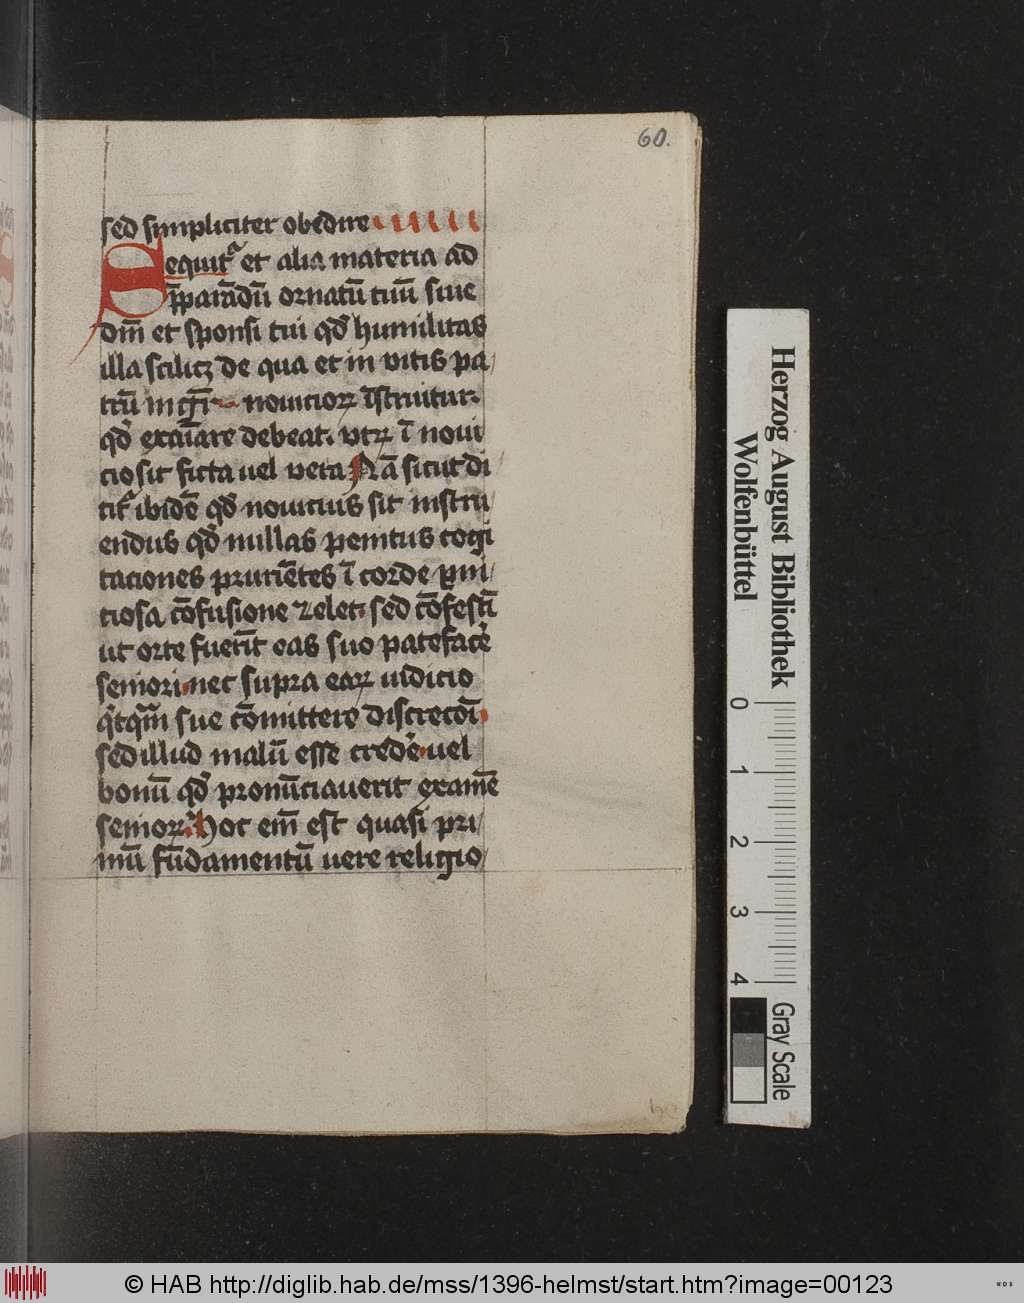 60.
sed simpliciter obedire
Sequit᷑ et alia materia ad
p̄parādū ornatū tuū siue
dm̄ et sponsi tui qd̓ humilitas
illa scilicꝫ de qua et in vitis pa/
trū in nouicioꝝ īstruitur.
qd̓ exaīare debeat. vtꝝ ī noui
cio sit ficta uel veta Nā sicut di/
cit᷑ ibidē qd̓ nouicius sit instru/
endus qd̓ nullas penitus cogi
taciones pruriētes ī corde ꝑni/
ciosa cōfusione zelet. sed cōfestī
ut orte fuerīt eas suo patefacē
seniori. nec supra eaꝝ uidicio
q̇tqm̄ sue cōmittere discrecōī.
sed illud malū esse credē. uel
bonū qd̓ pronūciauerit examē
senioꝝ. Hoc em̄ est quasi pri/
mū fūdamentū uere religio/
Herzog August Bibliothek
Wolfenbüttel
0 1 2 3 4
Gray Scale
© HAB http://diglib.hab.de/mss/1396-helmst/start.htm?image=00123